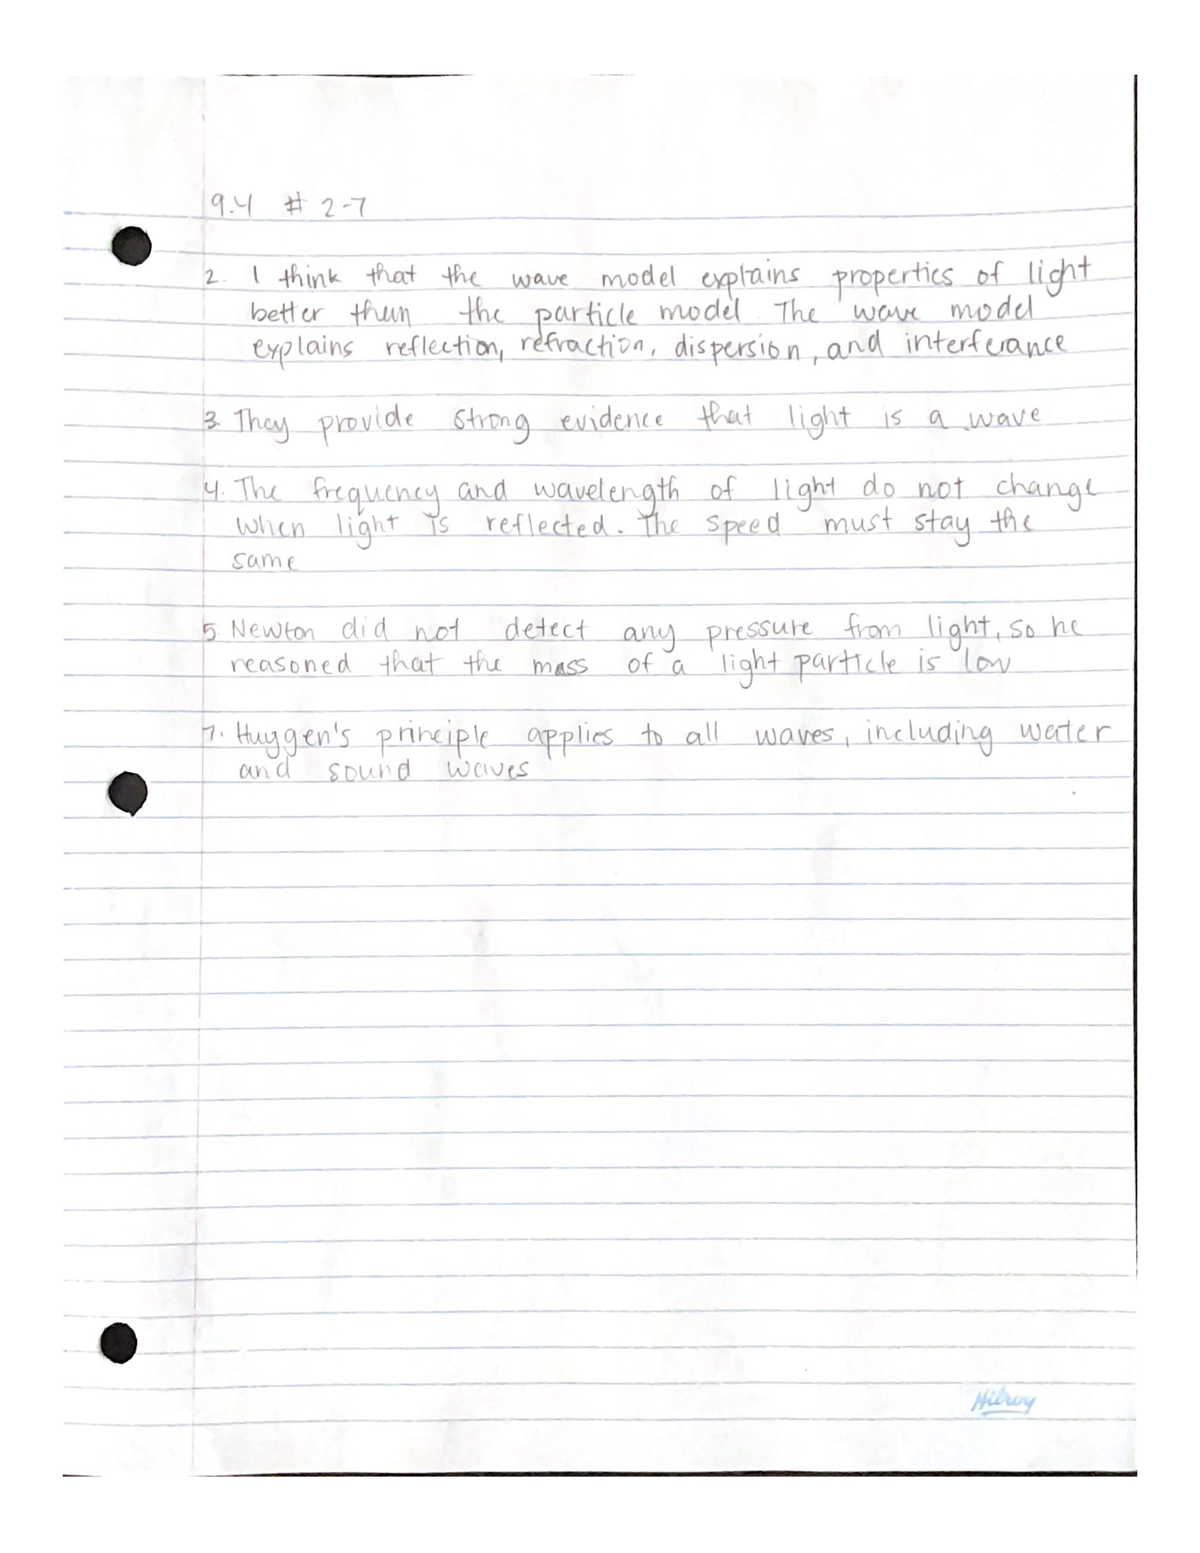 9.4 # 2-7
2. I think that the wave model explains properties of light
better than the particle model. The wave model
explains reflection, refraction, dispersion, and interferance
3. They provide strong evidence that light is a wave
4. The frequency and wavelength of light do not change
when light is reflected. The speed must stay the
same
5. Newton did not detect any pressure from light, so he
reasoned that the mass of a light particle is low
7. Huygen's principle applies to all waves, including water
and sound waves
Hilroy